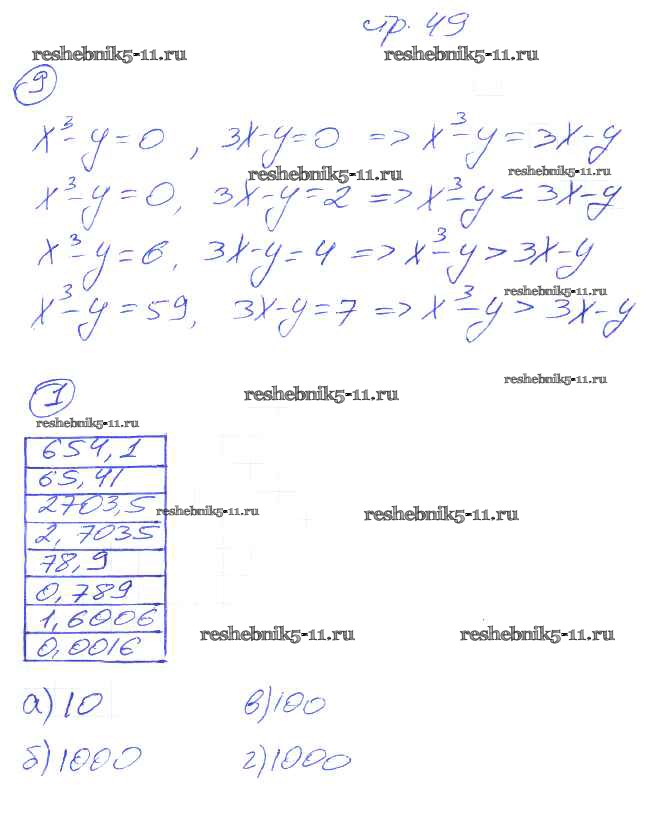 стр. 49
reshebnik5-11.ru reshebnik5-11.ru
9
x³-y=0, 3x-y=0 => x³-y=3x-y
reshebnik5-11.ru reshebnik5-11.ru
x³-y=0, 3x-y=2 => x³-y<3x-y
x³-y=6, 3x-y=4 => x³-y>3x-y
reshebnik5-11.ru
x³-y=59, 3x-y=7 => x³-y>3x-y
reshebnik5-11.ru
1 reshebnik5-11.ru
reshebnik5-11.ru
654,1
65,41
2703,5 reshebnik5-11.ru reshebnik5-11.ru
2,7035
78,9
0,789
1,6006 reshebnik5-11.ru reshebnik5-11.ru
0,0016
а) 10 в) 100
б) 1000 г) 1000